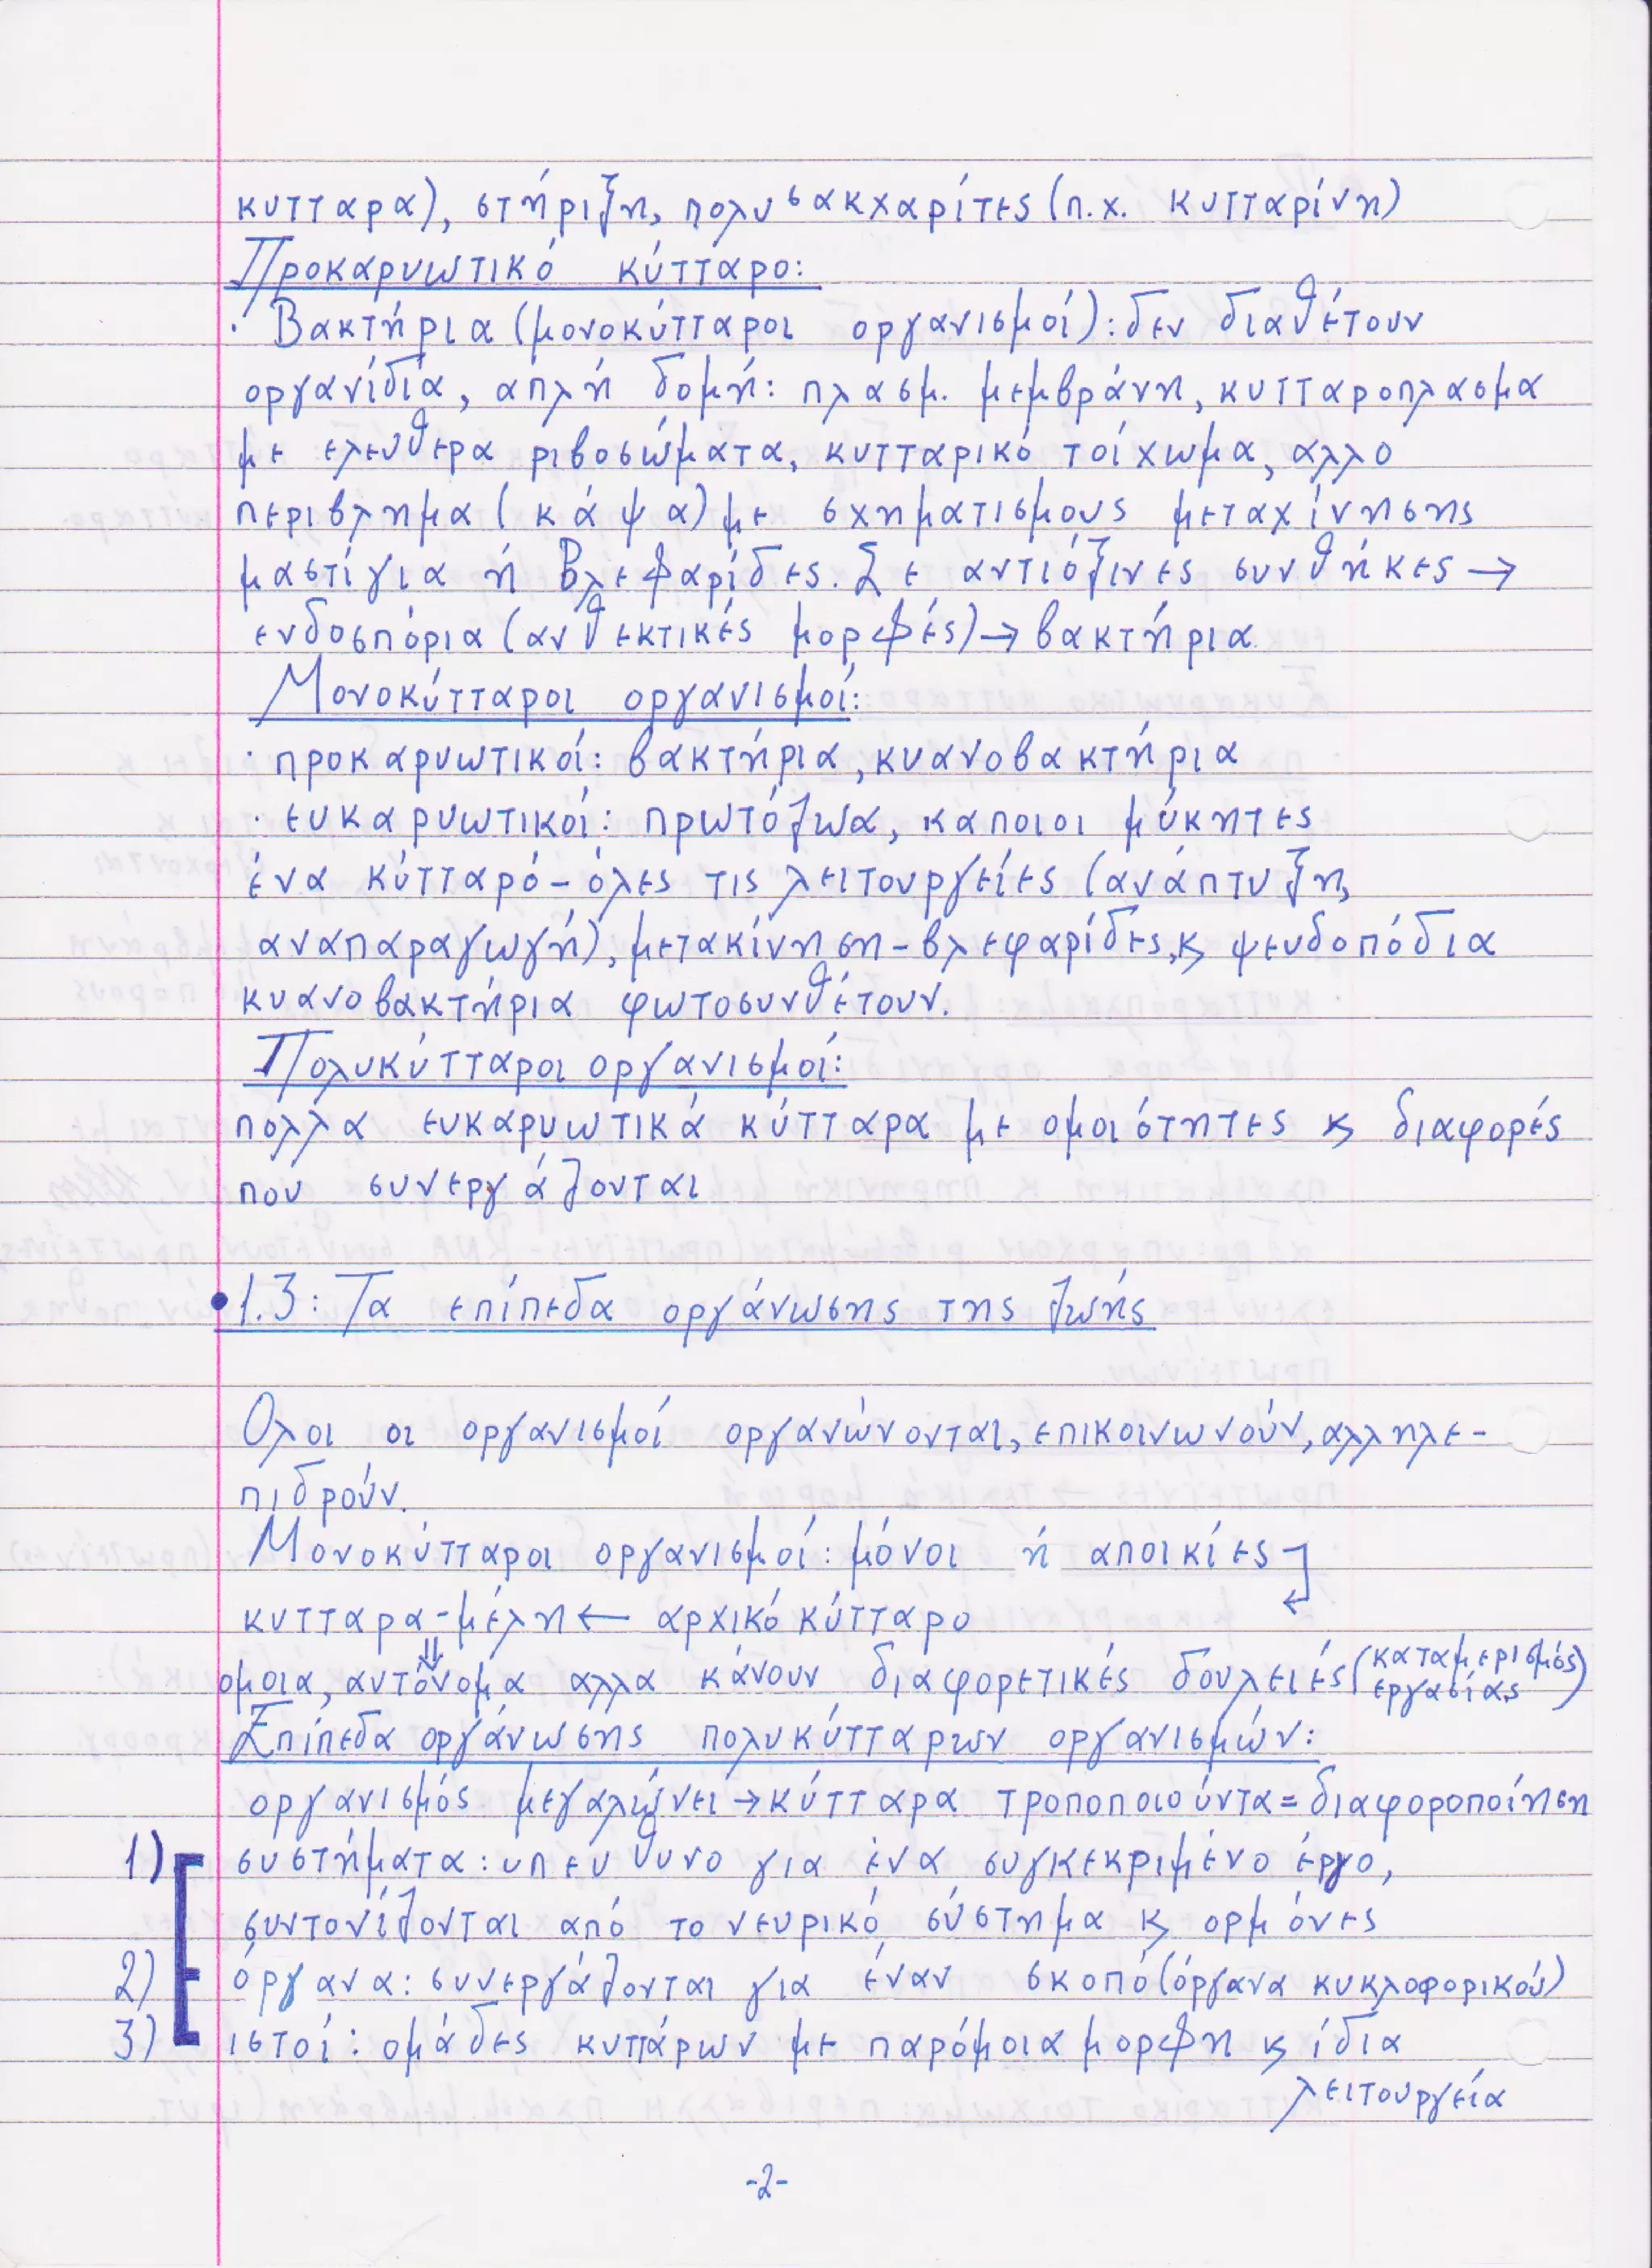 κυτταρα), στήριξη, πολυσακχαρίτες (π.χ. κυτταρίνη)
Προκαρυωτικό κύτταρο:
· Βακτήρια (μονοκύτταροι οργανισμοί): δεν διαθέτουν
οργανίδια, απλή δομή: πλασμ. μεμβράνη, κυτταροπλασμα
με ελευθερα ριβοσώματα, κυτταρικό τοίχωμα, αλλο
περιβλημα (κάψα) με σχηματισμους μεταχίνησης
μαστίγια ή Βλεφαρίδες. Σε αντιόξινες συνθήκες →
ενδοσπόρια (ανθεκτικές μορφές) → βακτήρια
Μονοκύτταροι οργανισμοί:
· προκαρυωτικοί: βακτήρια, κυανοβακτήρια
· ευκαρυωτικοί: πρωτόζωα, καποιοι μύκητες
ένα κύτταρό - όλες τις λειτουργείες (ανάπτυξη,
αναπαραγωγή), μετακίνηση - βλεφαρίδες, ϗ ψευδοπόδια
κυανοβακτήρια φωτοσυνθέτουν.
Πολυκύτταροι οργανισμοί:
πολλα ευκαρυωτικά κύτταρα με ομοιότητες ϗ διαφορές
που συνεργάζονται
• 1.3: Τα επίπεδα οργάνωσης της ζωής
Ολοι οι οργανισμοί οργανώνονται, επικοινωνούν, αλληλε-
πιδρούν.
Μονοκύτταροι οργανισμοί: μόνοι ή αποικίες ↵
κυτταρα - μέλη ← αρχικό κύτταρο
⇓
ομοια, αυτόνομα αλλα κάνουν διαφορετικές δουλειές (καταμερισμός
εργασίας)
Επίπεδα οργάνωσης πολυκύτταρων οργανισμών:
οργανισμός μεγαλώνει → κύτταρα τροποποιούντα = διαφοροποίηση
1) συστήματα: υπευθυνο για ένα συγκεκριμένο έργο,
συντονίζονται από το νευρικό σύστημα ϗ ορμόνες
2) όργανα: συνεργάζονται για έναν σκοπό (όργανα κυκλοφορικού)
3) ιστοί: ομάδες κυττάρων με παρόμοια μορφη ϗ ίδια
λειτουργεία
-2-